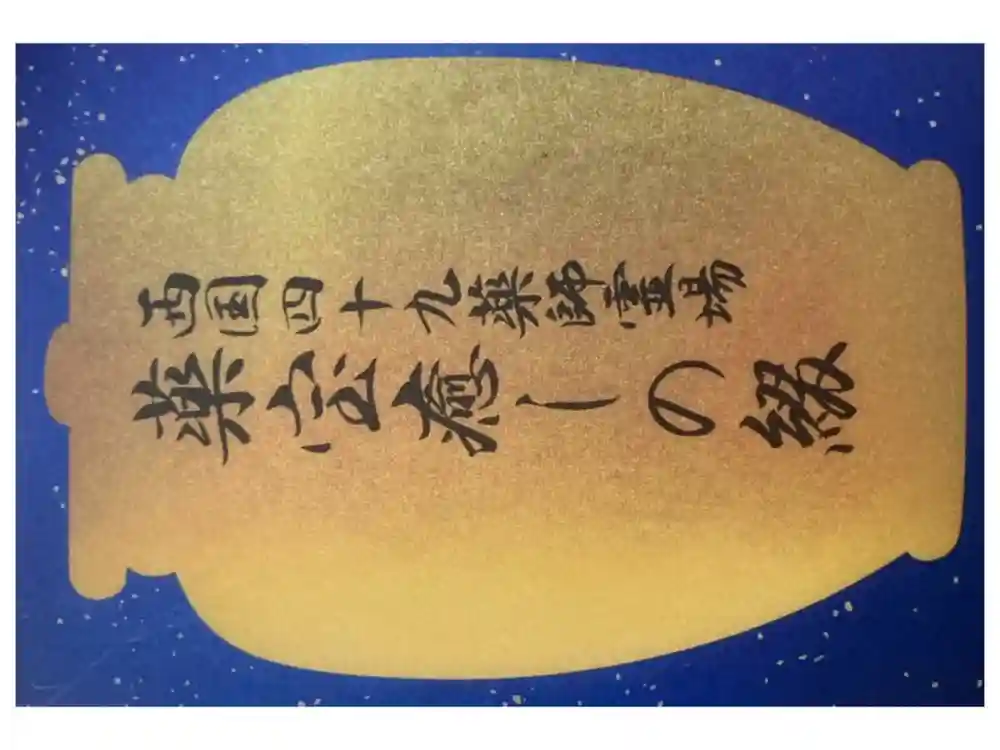 西国四十九薬師霊場
薬宝癒しの綴